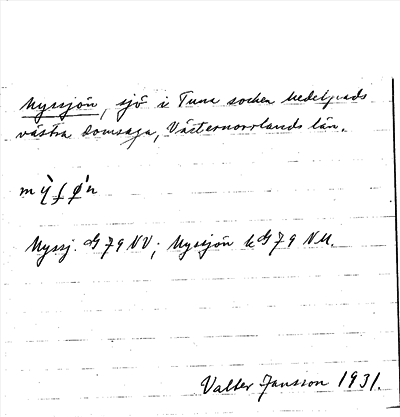 Myssjön, sjö i Tuna socken Medelpads
västra domsaga, Västernorrlands län.
Myssj. G 79 NV; Myssjön k G 79 NU.
Valter Jansson 1931.